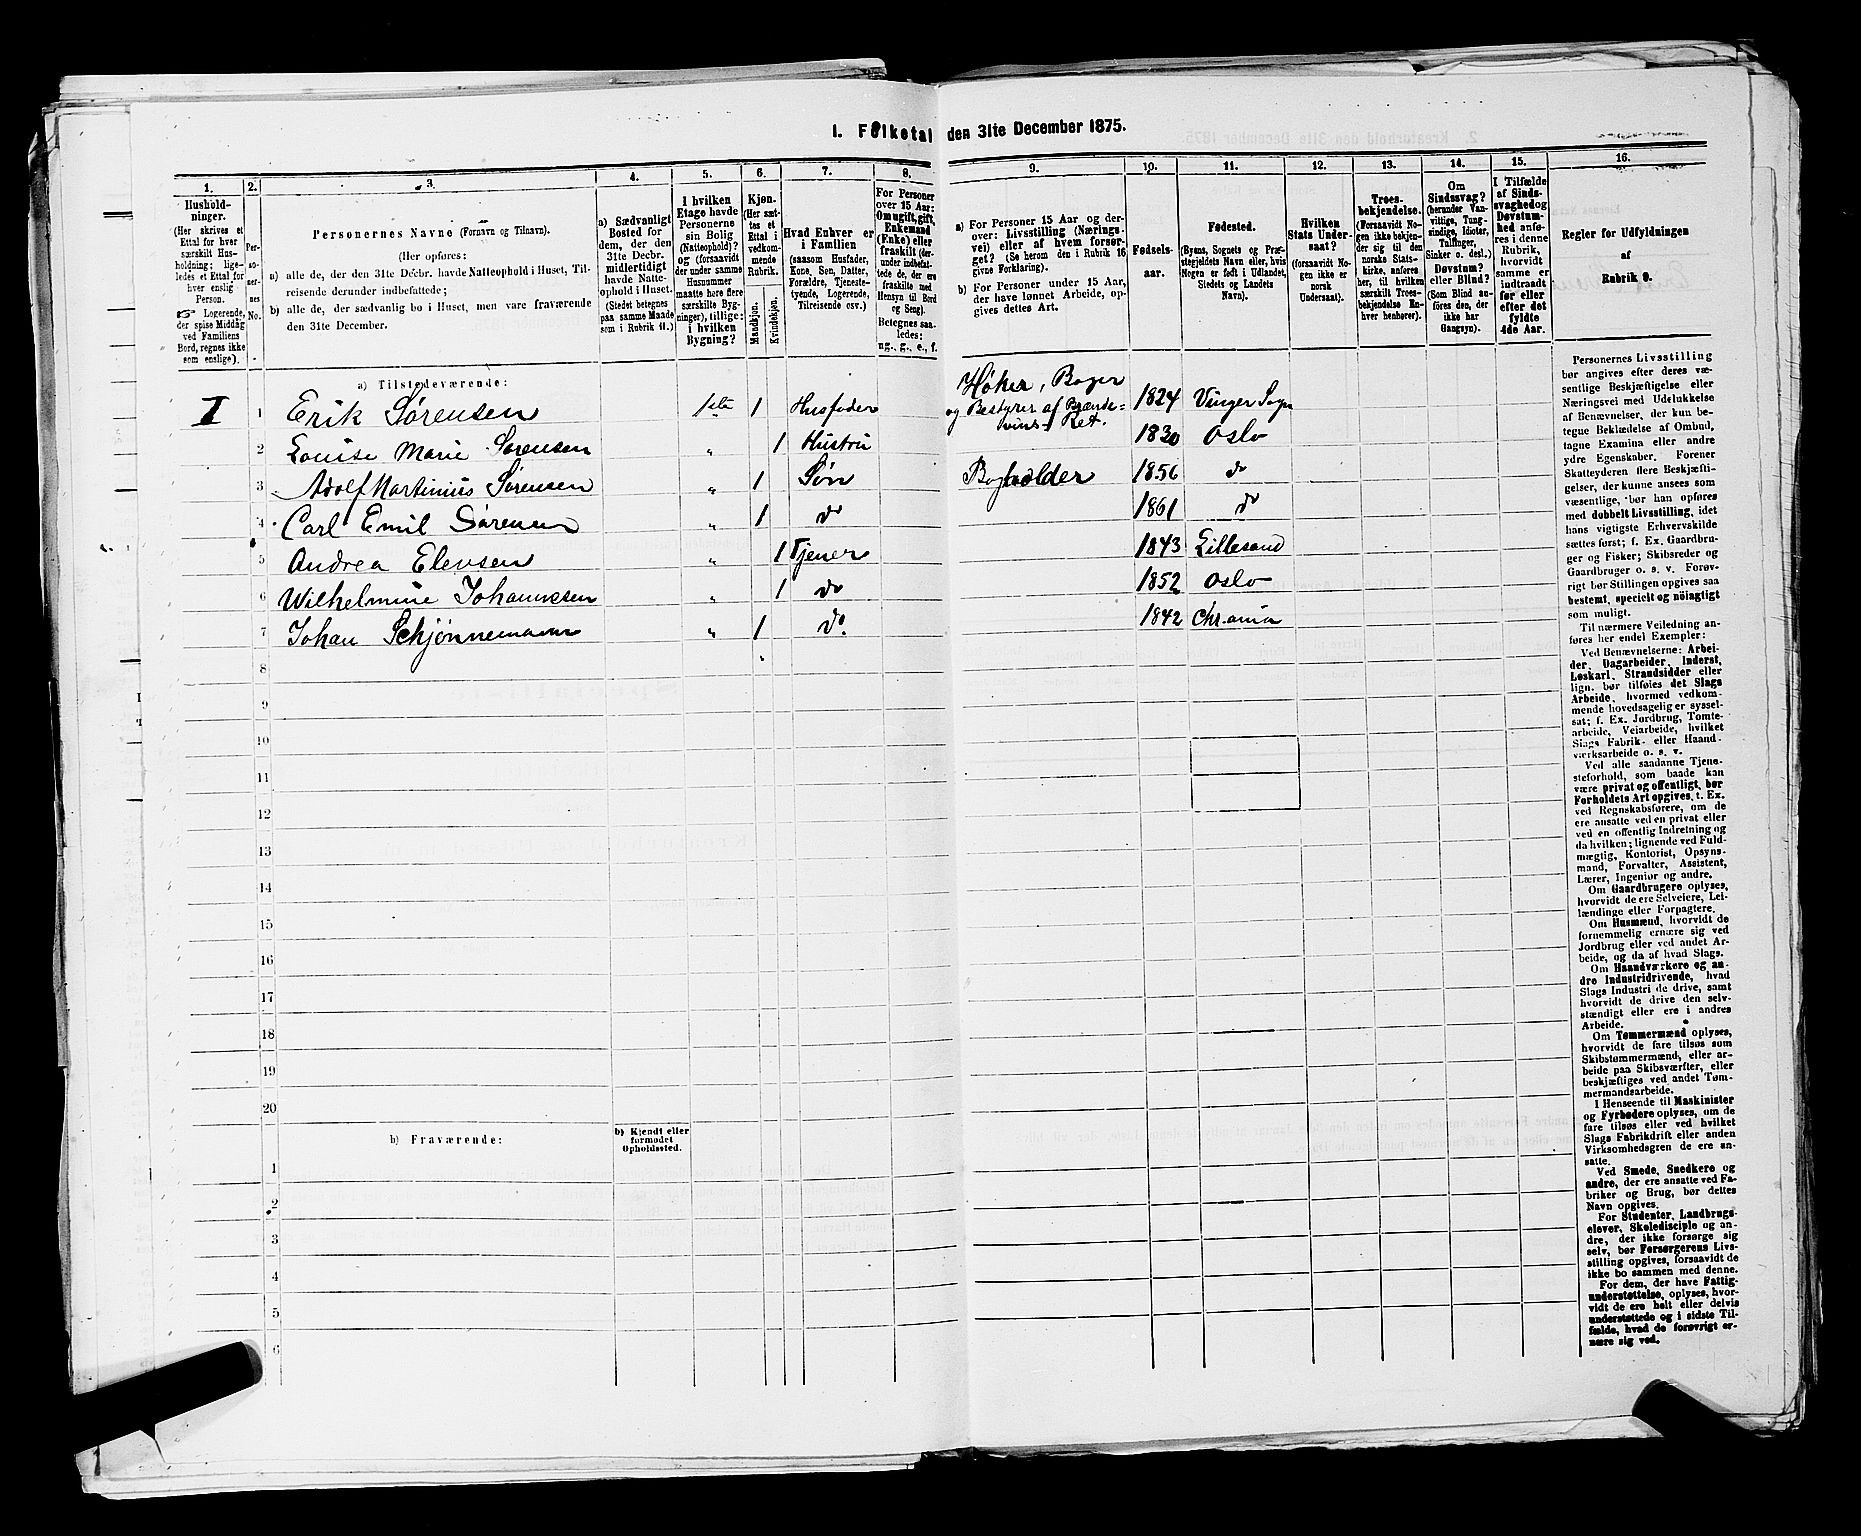 1. Folketal den 31te December 1875.
1. 2. 3. 4. 5. 6. 7. 8. 9. 10. 11. 12. 13. 14. 15. 16.
Husholdninger.
(Her skrives et
Ettal for hver
særskilt Husholdning;
ligeledes et Ettal for
hver enslig
Person.
☞ Logerende,
der spise Middag
ved Familiens
Bord, regnes ikke
som enslige).
Personernes No.
Personernes Navne (Fornavn og Tilnavn).
(Her opføres:
a) alle de, der den 31te Decbr. havde Natteophold i Huset, Tilreisende derunder indbefattede;
b) alle de, der sædvanlig bo i Huset, men vare fraværende
den 31te December.
a) Sædvanligt
Bosted for
dem, der den
31te Decbr.
midlertidigt
havde Natteophold i Huset.
(Stedet betegnes
paa samme Maade
som i Rubrik 11.)
I hvilken
Etage havde
Personerne
sin Bolig
(Natteophold)?
og (forsaavidt
der under samme
Husnummer
maatte høre flere
særskilte Bygninger), tillige:
i hvilken
Bygning?
Kjøn.
(Her sættes et
Ettal i
vedkommende
Rubrik.
Mandkjøn.
Kvindekjøn.
Hvad Enhver er
i Familien
(saasom Husfader,
Kone, Søn, Datter,
Forældre, Tjenestetyende, Logerende,
Tilreisende osv.)
For Personer
over 15 Aar:
Om ugift, gift,
Enkemand
(Enke) eller
fraskilt (derunder indbefattede de, der ere
fraskilte med
Hensyn til Bord
og Seng).
Betegnes saaledes:
ug., g., e., f.
a) For Personer 15 Aar og derover: Livsstilling (Næringsvei) eller af hvem forsørget? (Se herom den i Rubrik 16
givne Forklaring).
b) For Personer under 15 Aar,
der have lønnet Arbeide, opgives dettes Art.
Fødselsaar.
Fødested.
(Byens, Sognets og Præstegjeldets Navn eller, hvis
Nogen er født i Udlandet,
Stedets og Landets
Navn).
Hvilken
Stats Undersaat?
(forsaavidt Nogen ikke er
norsk
Undersaat).
Troesbekjendelse.
(Forsaavidt Nogen ikke bekjender sig til den
norske Statskirke, anføres
her, til hvilken
særskilt Troesbekjendelse Enhver henhører).
Om
Sindssvag?
(herunder Vanvittige, Tungsindige, Idioter,
Tullinger,
Sinker o. desl.)
Døvstum?
eller Blind?
(Som Blind anføres den, der
ikke har
Gangsyn).
I Tilfælde
af Sindssvaghed og
Døvstumhed anføres i denne
Rubrik,
hvorvidt
samme er
indtraadt
før eller
efter det
fyldte
4de Aar.
Regler for Udfyldningen
af
Rubrik 9.
a) Tilstedeværende:
I 1 Erik Sørensen 1ste 1 Husfader Høker, Bager og Bestyrer af Brændevins-Ret. 1824 Vinger Sogn
2 Louise Marie Sørensen „ 1 Hustru 1830 Oslo
3 Adolf Martinius Sørensen „ 1 Søn Bogholder 1856 do
4 Carl Emil Sørensen „ 1 do 1861 do
5 Andrea Elevsen „ 1 Tjener 1843 Lillesand
6 Wilhelmine Johannesen „ 1 do 1852 Oslo
7 Johan Schjønnemann „ 1 do. 1842 Chr.ania
8
9
10
11
12
13
14
15
16
17
18
19
20
b) Fraværende:
b) Kjendt eller
formodet
Opholdssted.
1
2
3
4
5
6
Personernes Livsstilling
bør angives efter deres væsentlige Beskjæftigelse eller
Næringsvei med Udelukkelse
af Benævnelser, der kun betegne Beklædelse af Ombud,
tagne Examina eller andre
ydre Egenskaber. Forener
Skatteyderen flere Beskjæftigelser, der kunne ansees som
væsentlige, bør han opføres
med dobbelt Livsstilling, idet
hans vigtigste Erhvervskilde
sættes først; f. Ex. Gaardbruger og Fisker; Skibsreder og
Gaardbruger o. s. v. Forøvrigt bør Stillingen opgives saa
bestemt, specielt og nöiagtigt
som muligt.
Til nærmere Veiledning anføres her endel Exempler:
Ved Benævnelserne: Arbeider, Dagarbeider, Inderst,
Løskarl, Strandsidder eller
lign. bør tilføies det Slags
Arbeide, hvormed vedkommende hovedsagelig er sysselsat; f. Ex. Jordbrug, Tomtearbeide, Veiarbeide, hvilket
Slags Fabrik- eller Haandværksarbeide o. s. v.
Ved alle saadanne Tjenesteforhold, som baade kan
være privat og offentligt, bør
Forholdets Art opgives, t. Ex.
ved Regnskabsførere, om de
ere ansatte ved en privat eller
ved en offentlig Indretning og
da hvilken; lignende ved Fuldmægtig, Kontorist, Opsynsmand, Forvalter, Assistent,
Lærer, Ingeniør og andre.
Om Gaardbrugere oplyses,
hvorvidt de ere Selveiere, Leilændinge eller Forpagtere.
Om Husmænd, hvorvidt de
fornemmelig ernære sig ved
Jordbrug eller ved andet Arbeide, og da af hvad Slags.
Om Haandværkere og andre Industridrivende, hvad
Slags Industri de drive, samt
hvorvidt de drive den selvstændigt eller ere i andres
Arbeide.
Om Tømmermænd oplyses,
hvorvidt de fare tilsøs som
Skibstømmermænd, eller arbeide paa Skibsværfter, eller
beskjæftiges ved andet Tømmermandsarbeide.
I Henseende til Maskinister
og Fyrbødere oplyses, om de
fare tilsøs eller ved hvilket
Slags Fabrikdrift eller anden
Virksomhedsgren de ere ansatte.
Ved Smede, Snedkere og
andre, der ere ansatte ved Fabriker og Brug, bør dettes
Navn opgives.
For Studenter, Landbrugselever, Skoledisciple og andre, der ikke forsørge sig
selv, bør Forsørgerens Livsstilling opgives, forsaavidt de
ikke bo sammen med denne.
For dem, der have Fattigunderstøttelse, oplyses, hvorvidt de ere helt eller delvis
understøttede og i sidste Tilfælde, hvad de forøvrigt ernære sig ved.